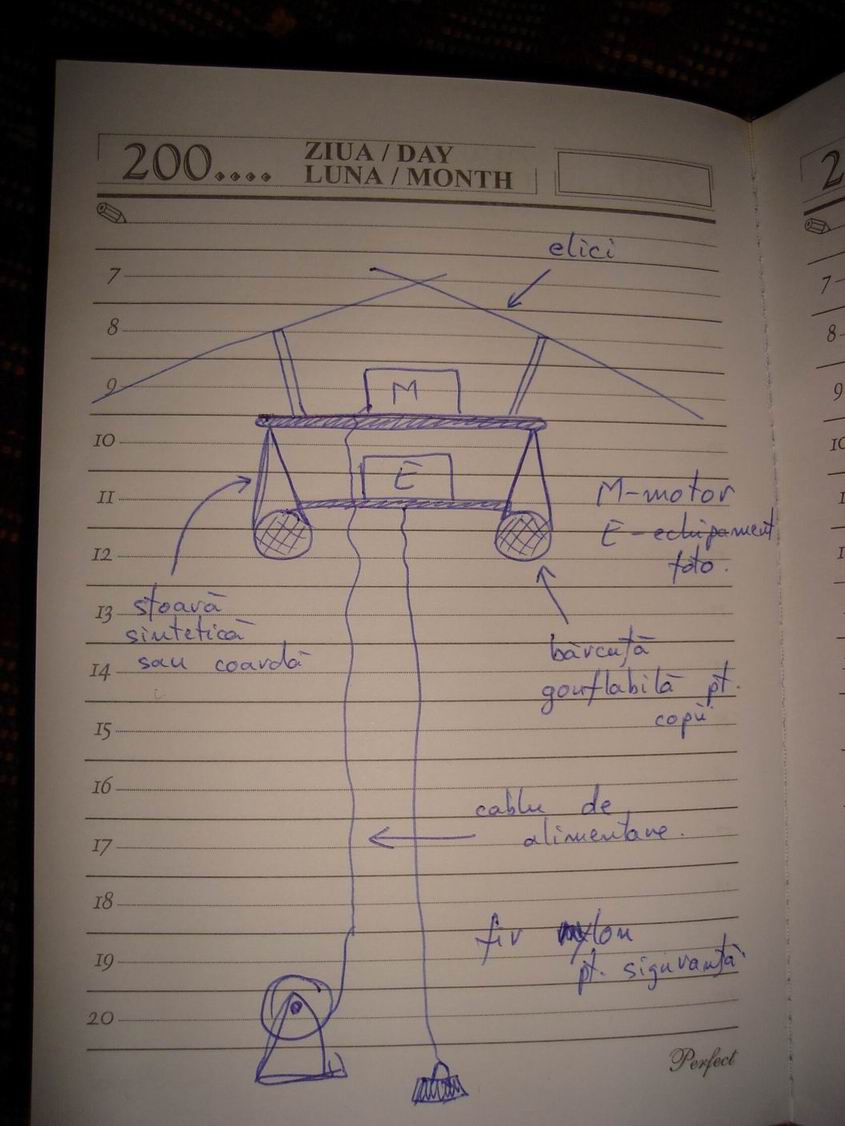 200....
ZIUA / DAY
LUNA / MONTH
elici
7
8
M
9
10
E
11
M-motor
E-echipament
foto.
12
stoară
13
sintetică
sau coardă
bărcuță
14
gonflabilă pt.
copii
15
16
cablu de
alimentare.
17
18
fir nylon
19
pt. siguranță
20
Perfect
2
7
8
9